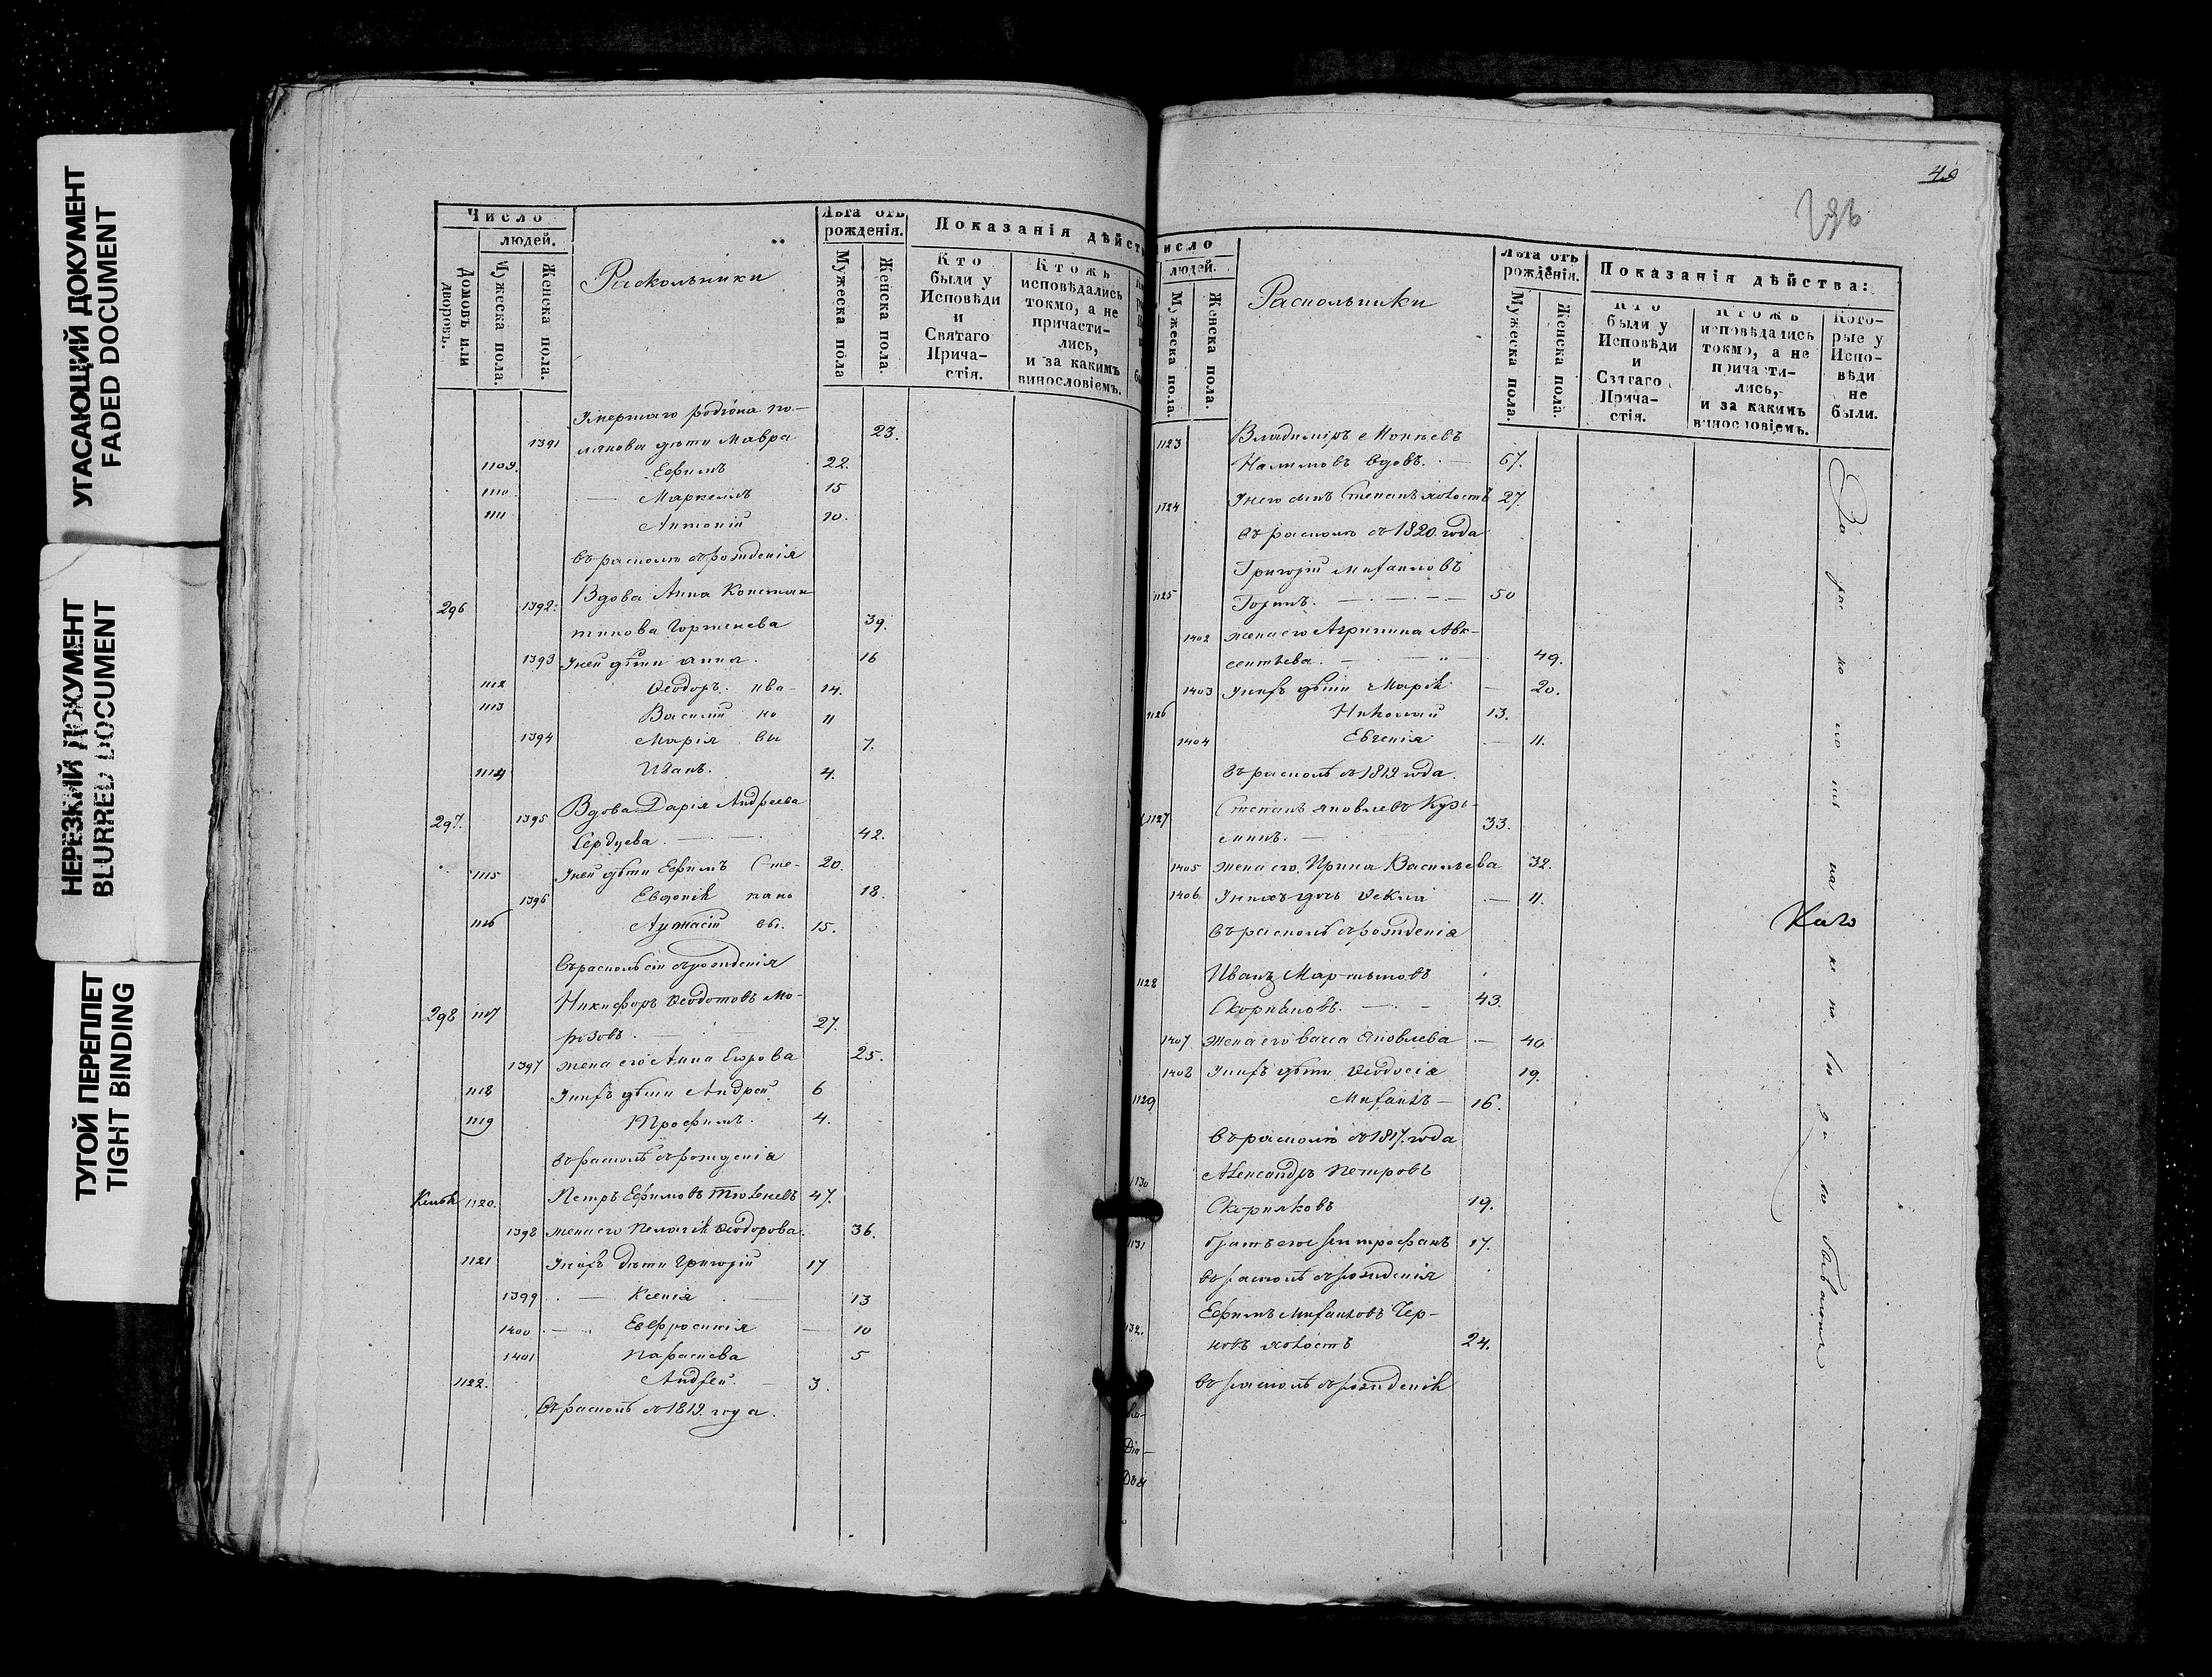 УГАСАЮЩИЙ ДОКУМЕНТ
FADED DOCUMENT
НЕРЕЗКИЙ ДОКУМЕНТ
BLURRED DOCUMENT
ТУГОЙ ПЕРЕПЛЕТ
TIGHT BINDING
Число
людей.
Домовъ или дворовъ.
Мужеска пола.
Женска пола.
Раскольники
Лѣта отъ рожденія.
Мужеска пола
Женска пола.
Показанія дѣйст
Кто были у Исповѣди и Святаго Причастія.
Ктожъ исповѣдались токмо, а не причастились, и за какимъ винословіемъ.
Умершаго родіона по-
1391 лякова дѣти Мавра 23.
1109. Ефимъ 22.
1110 Маркеллъ 15
1111 Антоній 10.
въ расколѣ съ рожденія
296 1392. Вдова Анна Констан
тинова Гортенева 39.
1393 У ней дѣти анна. 16
1112 Ѳеодоръ ива- 14.
1113 Василій но 11
1394 Марія вы 7.
1114 Иванъ. 4.
297. 1395 Вдова Дарія Андреева
Сердцева. 42.
1115 У ней дѣти Ефимъ Сте- 20.
1396 Евдокія пано 18.
1116 вы. 15.
въ расколѣ съ рожденія
298 1117 Никифоръ Ѳеодотовъ Мо-
розовъ. 27.
1397 жена его Анна Егорова 25.
1118 У нихъ дѣти Андрей 6
1119 Трофимъ. 4.
въ расколѣ съ рожденія
1120. Петръ Ефимовъ 47.
1398 жена его Пелагія Ѳеодорова. 36.
1121 У нихъ дѣти Григорій 17
1399 Ксенія 13
1400 Евфросинія 10
1401 Параскева 5
1122. Андрей. 3.
въ расколѣ съ 1819. года.
40
исло
людей.
Мужеска пола.
Женска пола.
Раскольники
Лѣта отъ рожденія.
Мужеска пола.
Женска пола.
Показанія дѣйства:
Кто были у Исповѣди и Святаго Причастія.
Ктожъ исповѣдались токмо, а не причастились, и за какимъ винословіемъ.
Которые у Исповѣди не были.
1123 Владиміръ
Налимовъ вдовъ. 67.
1124 У него сынъ Степанъ холостъ 27.
въ расколѣ съ 1820. года
Григорій Михаиловъ
1125 Горинъ. 50
1402 жена его Агрипина Авк-
сентьева. 49.
1403 У нихъ дѣти Марія 20.
1126 Николай 13.
1404 Евгенія 11.
въ расколѣ съ 1819 года.
1127 Степанъ Яковлевъ Кузь-
минъ. 33.
1405 жена его Ирина Васильева 32.
1406 У нихъ дочь Ѳекла 11.
въ расколѣ съ рожденія
1128 Иванъ Мартыновъ
43.
1407 жена его васса Яковлева 40
1408 У нихъ дѣти Ѳеодосія 19.
1129 Михаилъ 16.
въ расколѣ съ 1817. года
1130 Александръ Петровъ
Скорняковъ 19.
1131 братъ его Митрофанъ 17.
въ расколѣ съ рожденія
Ефимъ Михаиловъ Чер-
132. новъ холостъ 24.
въ расколѣ съ рожденія